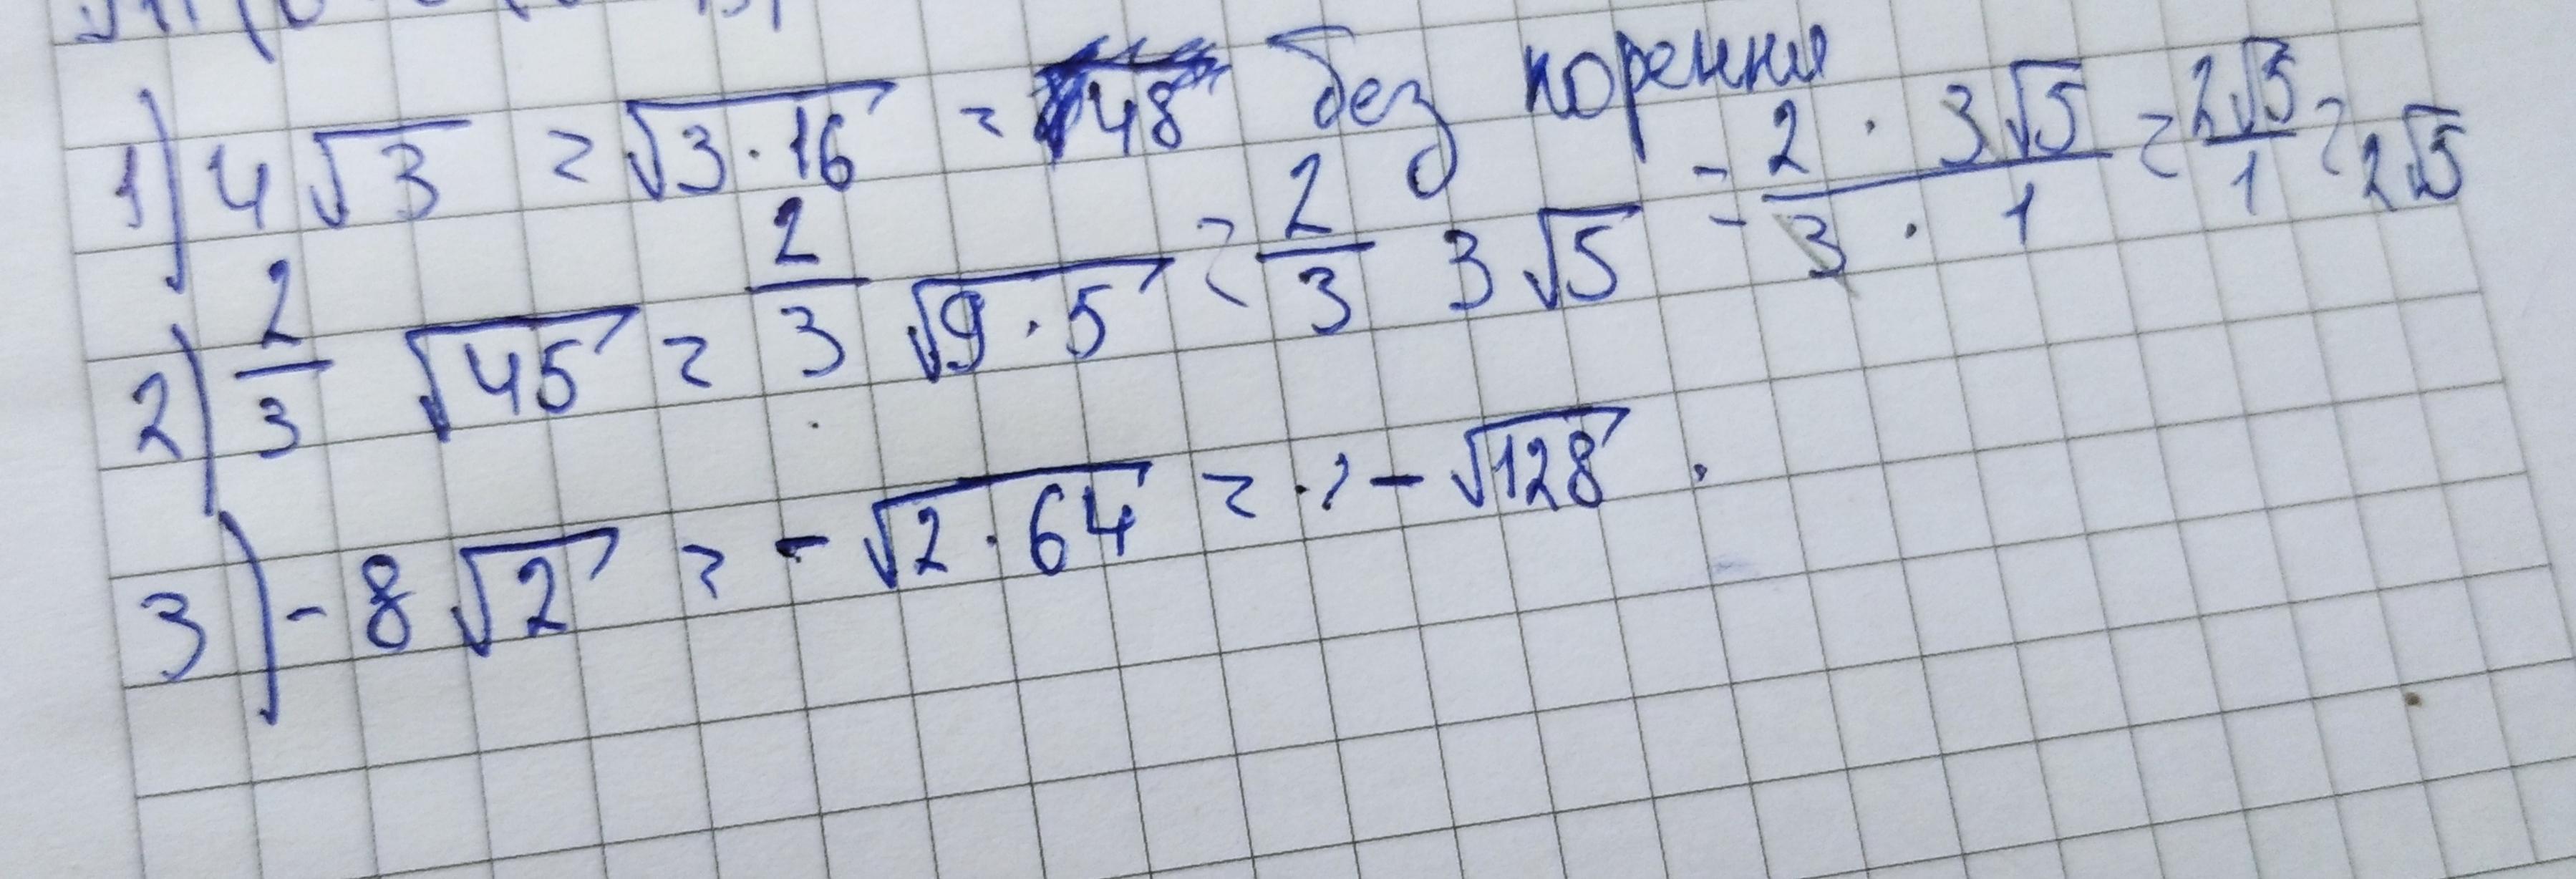 1) 4√3 = √3·16 = 48 без коренни
2) 2/3 √45 = 2/3 √9·5 = 2/3 3√5 = 2·3√5/3·1 = 2√5/1 = 2√5
3) -8√2 = -√2·64 = -√128.